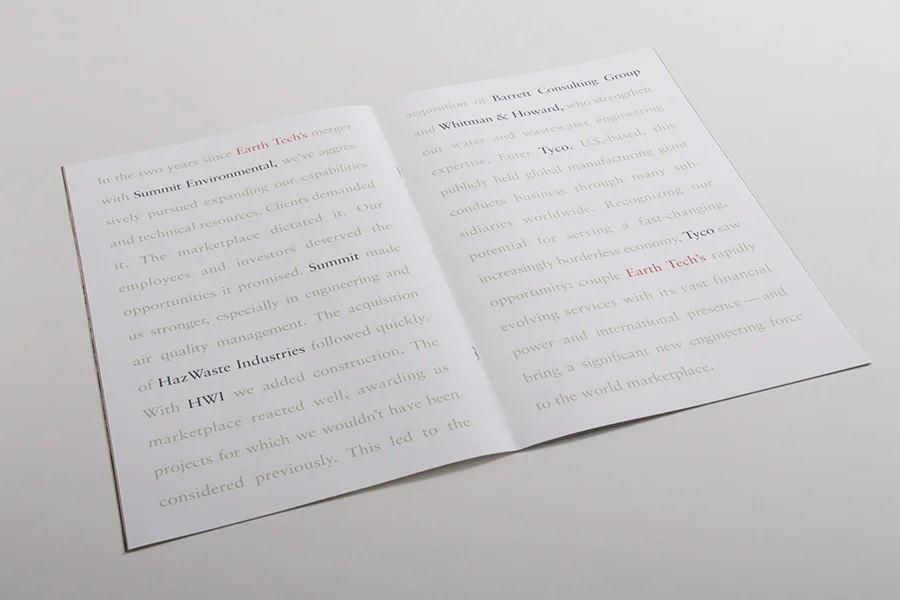 In the two years since Earth Tech's merger
with Summit Environmental, we've aggres-
sively pursued expanding our capabilities
and technical resources. Clients demanded
it. The marketplace dictated it. Our
employees and investors deserved the
opportunities it promised. Summit made
us stronger, especially in engineering and
air quality management. The acquisition
of HazWaste Industries followed quickly.
With HWI we added construction. The
marketplace reacted well, awarding us
projects for which we wouldn't have been
considered previously. This led to the
acquisition of Barrett Consulting Group
and Whitman & Howard, who strengthen
our water and wastewater engineering
expertise. Enter Tyco. U.S.-based, this
publicly held global manufacturing giant
conducts business through many sub-
sidiaries worldwide. Recognizing our
potential for serving a fast-changing,
increasingly borderless economy, Tyco saw
opportunity: couple Earth Tech's rapidly
evolving services with its vast financial
power and international presence — and
bring a significant new engineering force
to the world marketplace.